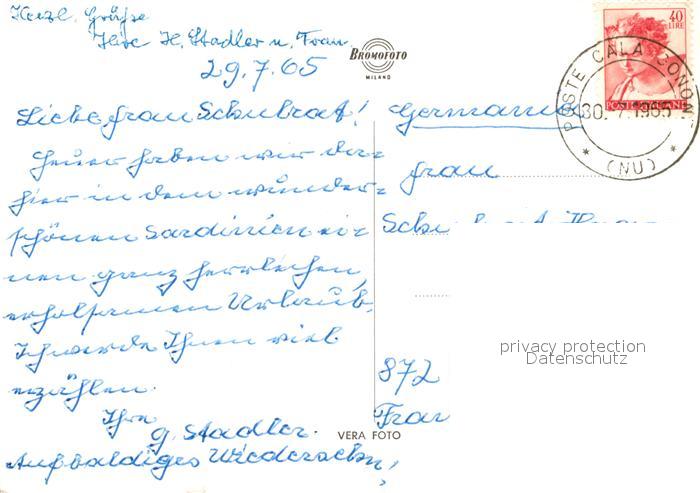 Herzl. Grüße
Ihre H. Stadler u. Frau
29.7.65
Liebe Frau Schubrat!
Heuer haben wir da=
hier in dem wunder=
schönen Sardinien ei=
nen ganz herrlichen,
erholsamen Urlaub.
Ich werde Ihnen viel
erzählen.
Ihre
G. Stadler.
Auf baldiges Wiedersehn!
BROMOFOTO
MILANO
VERA FOTO
40
LIRE
POSTE ITALIANE
POSTE CALA GONONE
30.7.1965
(NU)
Germania
Frau
872
privacy protection
Datenschutz